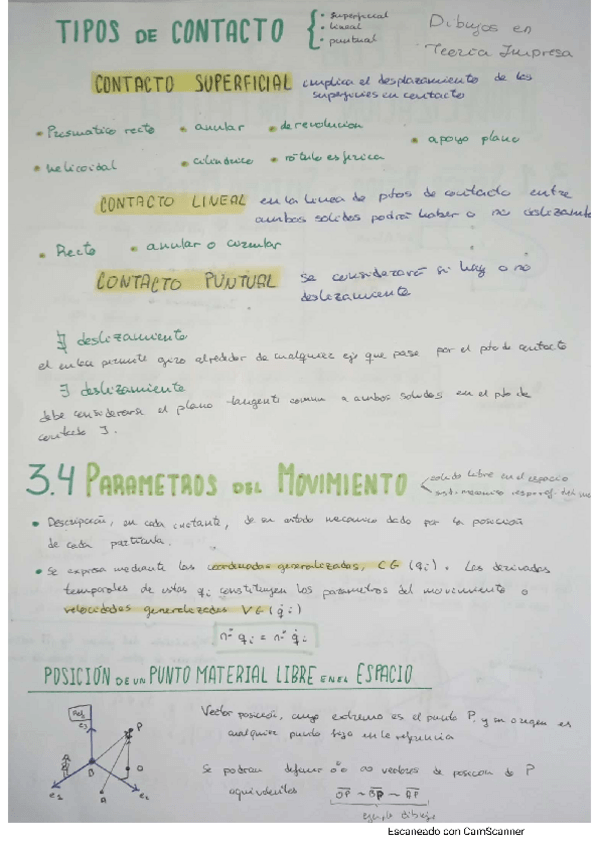 TIPOS DE CONTACTO { · superficial · lineal · puntual
Dibujos en Teoría Impresa
CONTACTO SUPERFICIAL implica el desplazamiento de las superficies en contacto
• Prismatico recto • anular • de revolucion • apoyo plano
• helicoidal • cilindrico • rótula esférica
CONTACTO LINEAL en la linea de ptos de contacto entre
ambos solidos podrá haber o no deslizamto
• Recto • anular o circular
CONTACTO PUNTUAL se considerará si hay o no
deslizamiento
∄ deslizamiento
el enlace permite giro alrededor de cualquier eje que pase por el pto de contacto
∃ deslizamiento
debe considerarse el plano tangente comun a ambos solidos en el pto de
contacto J.
3.4 PARAMETROS DEL MOVIMIENTO
solido libre en el espacio
sist. mecanico respec ref.
• Descripción, en cada instante, de un estado mecanico dado por la posición
de cada particula.
• Se expresa mediante las coordenadas generalizadas, CG (qi). Las derivadas
temporales de estas qi constituyen los parametros del movimiento o
velocidades generalizadas VG (q̇i)
nº qi = nº q̇i
POSICIÓN DE UN PUNTO MATERIAL LIBRE EN EL ESPACIO
Vector posición, cuyo extremo es el punto P, y su origen es
cualquier punto fijo en la referencia
Se podran definir vectores de posición de P
equivalentes OP ~ BP ~ AP
ejemplo dibujo
Ref
e3
P
B
Q
e1
A
e2
Escaneado con CamScanner